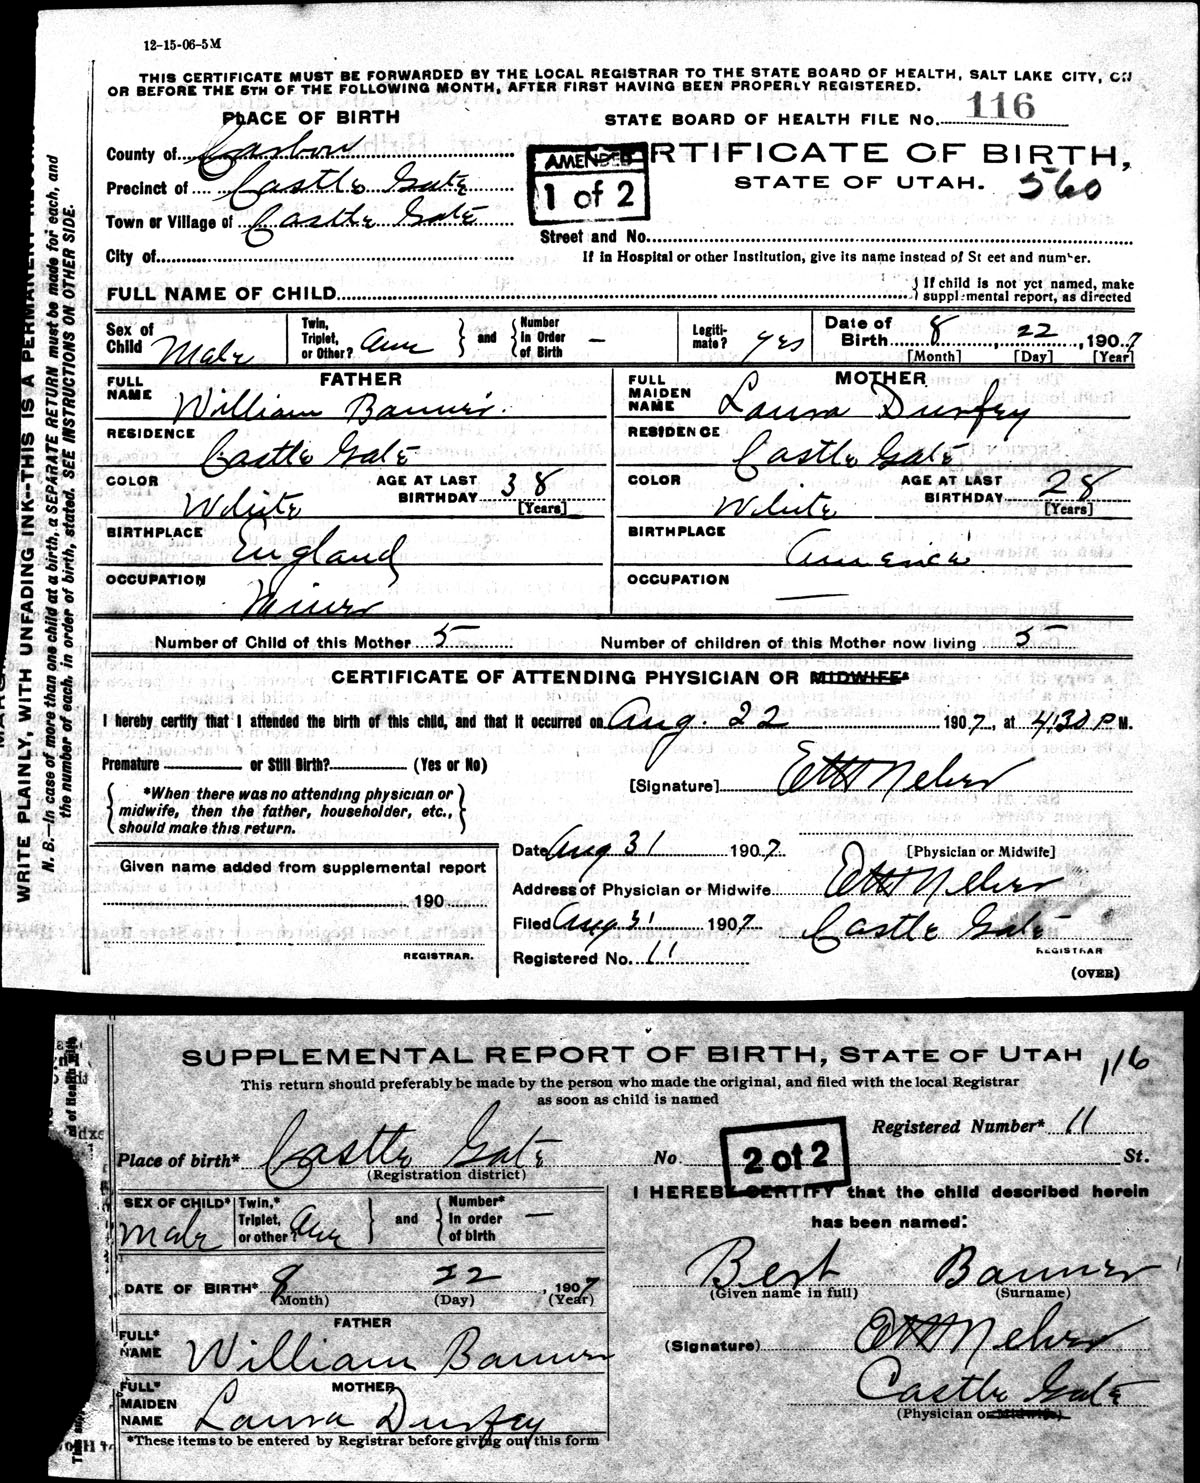 12-15-06-5M
THIS CERTIFICATE MUST BE FORWARDED BY THE LOCAL REGISTRAR TO THE STATE BOARD OF HEALTH, SALT LAKE CITY, ON
OR BEFORE THE 5TH OF THE FOLLOWING MONTH, AFTER FIRST HAVING BEEN PROPERLY REGISTERED.
PLACE OF BIRTH
STATE BOARD OF HEALTH FILE No. 116
County of Carbon
AMENDED
1 of 2
RTIFICATE OF BIRTH,
STATE OF UTAH. 560
Precinct of Castle Gate
Town or Village of Castle Gate
Street and No.
City of
If in Hospital or other Institution, give its name instead of St eet and number.
FULL NAME OF CHILD
If child is not yet named, make
supplemental report, as directed
Sex of Child Male
Twin, Triplet, or Other?
and
Number In Order of Birth —
Legiti-mate? yes
Date of Birth 8, 22, 1907
[Month] [Day] [Year]
FATHER
FULL NAME William Banner
MOTHER
FULL MAIDEN NAME Laura Durfey
RESIDENCE Castle Gate
RESIDENCE Castle Gate
COLOR White AGE AT LAST BIRTHDAY 38 [Years]
COLOR White AGE AT LAST BIRTHDAY 28 [Years]
BIRTHPLACE England
BIRTHPLACE America
OCCUPATION Miner
OCCUPATION —
Number of Child of this Mother 5
Number of children of this Mother now living 5
CERTIFICATE OF ATTENDING PHYSICIAN OR MIDWIFE*
I hereby certify that I attended the birth of this child, and that it occurred on Aug. 22 1907, at 4:30 P M.
Premature ——— or Still Birth? ——— (Yes or No)
[Signature]
*When there was no attending physician or
midwife, then the father, householder, etc.,
should make this return.
Date Aug 31 1907.
[Physician or Midwife]
Given name added from supplemental report
190
REGISTRAR.
Address of Physician or Midwife
Filed Aug 31 1907 Castle Gate
REGISTRAR
Registered No. 11
(OVER)
WRITE PLAINLY, WITH UNFADING INK--THIS IS A PERMANENT RECORD
N. B.—In case of more than one child at a birth, a SEPARATE RETURN must be made for each, and
the number of each, in order of birth, stated. SEE INSTRUCTIONS ON OTHER SIDE.
SUPPLEMENTAL REPORT OF BIRTH, STATE OF UTAH 116
This return should preferably be made by the person who made the original, and filed with the local Registrar
as soon as child is named
Registered Number* 11
Place of birth* Castle Gate No. St.
(Registration district)
2 of 2
SEX OF CHILD* Male
Twin,* Triplet, or other?
and
Number* In order of birth —
I HEREBY CERTIFY that the child described herein
has been named:
DATE OF BIRTH* 8 22, 1907
(Month) (Day) (Year)
Bert Banner
(Given name in full) (Surname)
FATHER
FULL* NAME William Banner
(Signature)
Castle Gate
(Physician or Midwife)
MOTHER
FULL* MAIDEN NAME Laura Durfey
*These items to be entered by Registrar before giving out this form